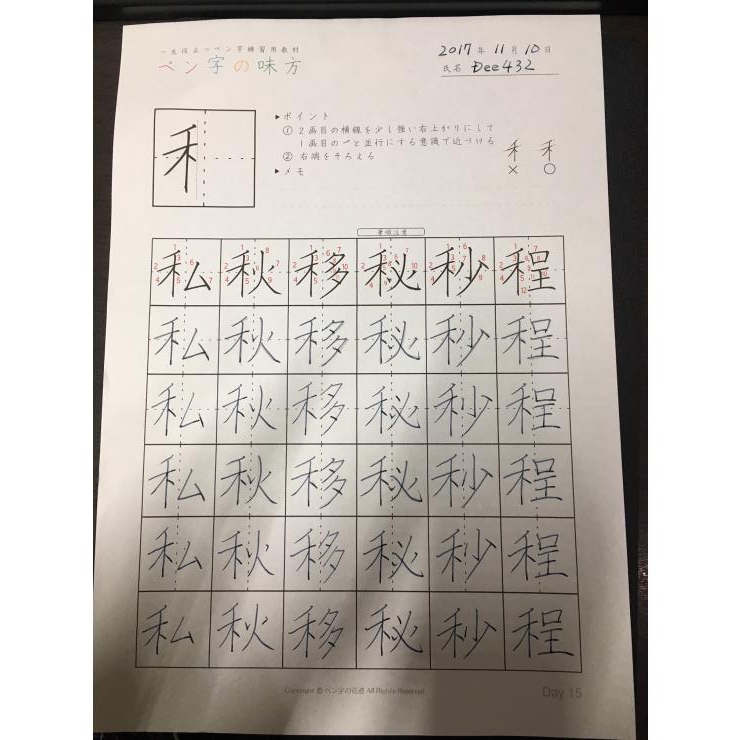 一生役立つペン字練習用教材
ペン字の味方
2017年11月10日
氏名 Dee432
禾
▶ポイント
① 2画目の横線を少し強い右上がりにして
1画目の㇒と並行にする意識で近づける
② 右端をそろえる
▶メモ
禾 禾
× ○
筆順注意
私 秋 移 秘 秒 程
私 秋 移 秘 秒 程
私 秋 移 秘 秒 程
私 秋 移 秘 秒 程
私 秋 移 秘 秒 程
私 秋 移 秘 秒 程
Copyright ㊞ ペン字の花道 All Rights Reserved.
Day 15